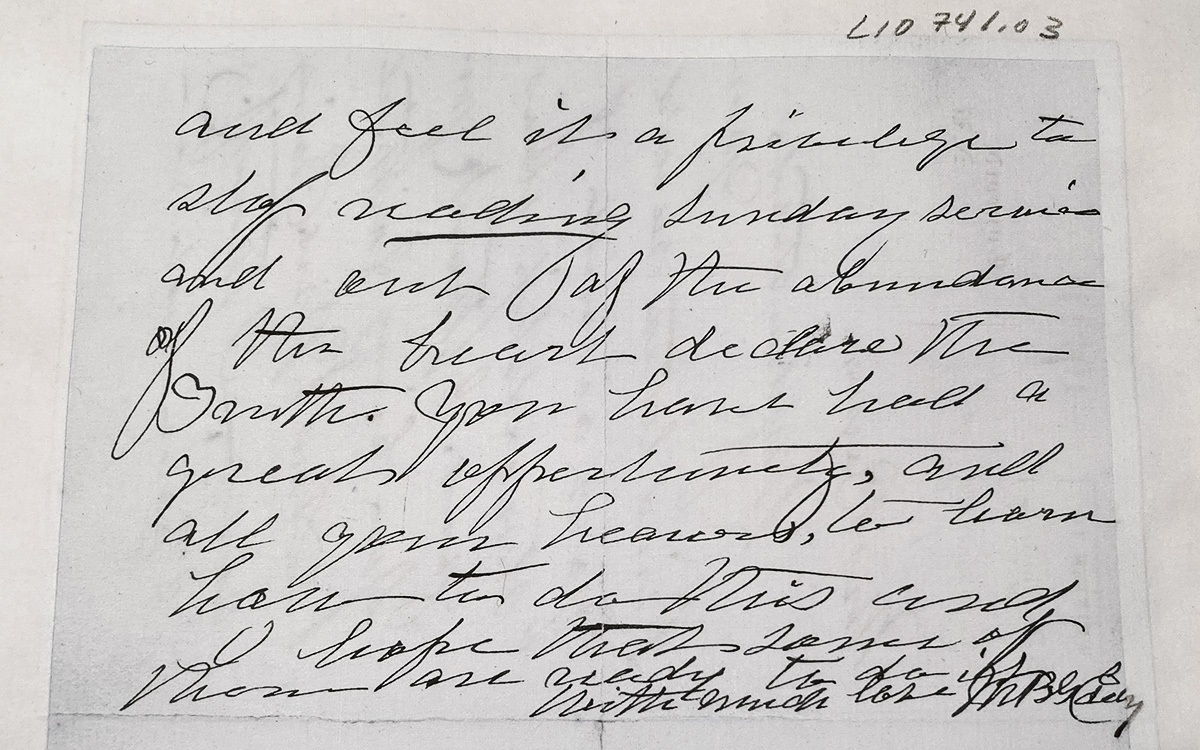 L10741.03
and feel it is a privilege to
stop reading Sunday service
and out of the abundance
of the heart declare the
Truth. You have had a
great opportunity, and
all your hearers, to learn
how to do this and
I hope that some of
them are ready to do it
With much love MBG Eddy